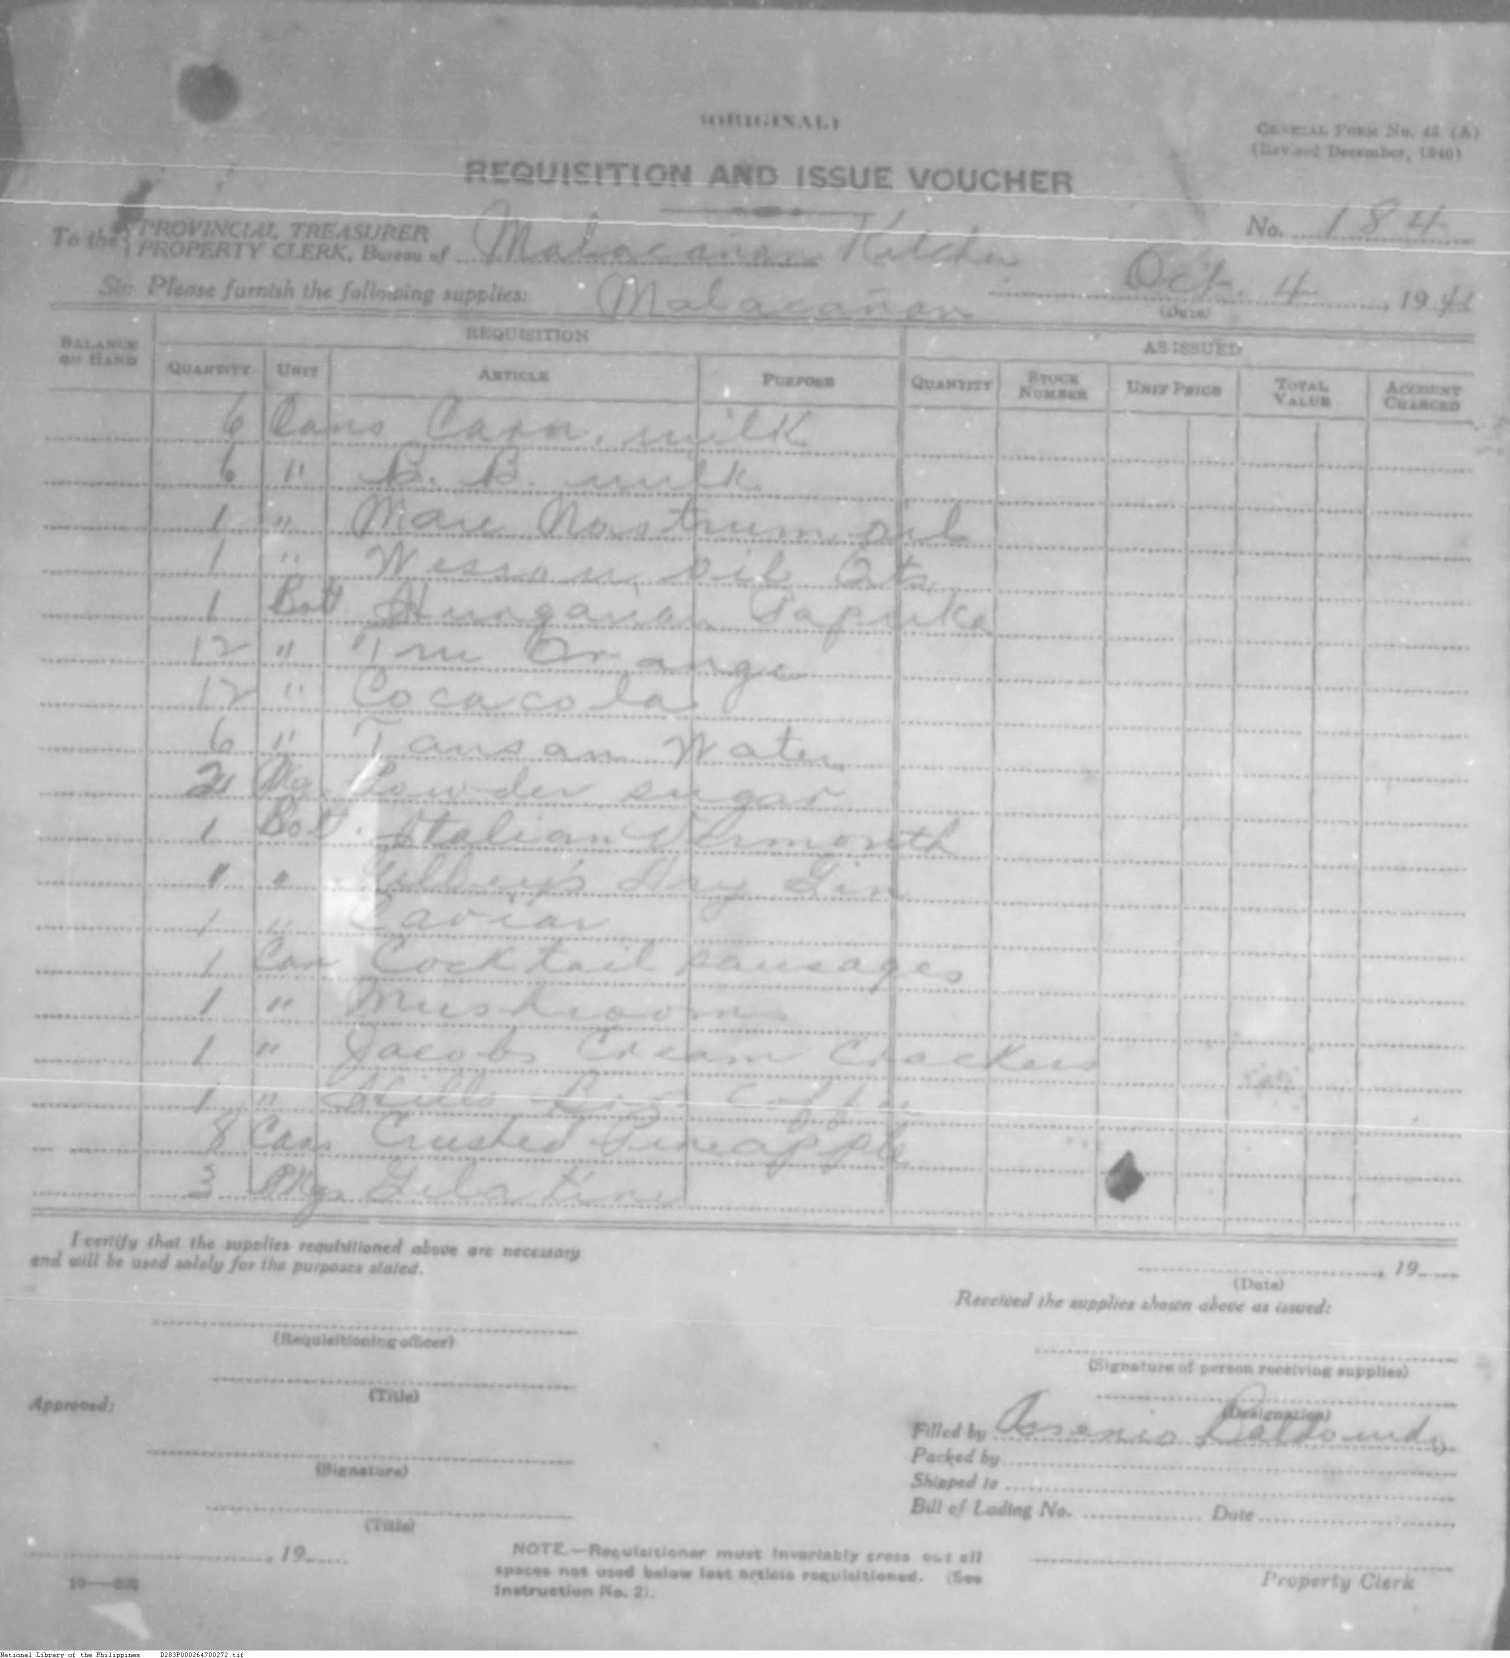 (ORIGINAL)
GENERAL FORM No. 45 (A)
(Revised December, 1940)
REQUISITION AND ISSUE VOUCHER
No. 184
To the PROVINCIAL TREASURER
PROPERTY CLERK, Bureau of Malacañan Kitchen
Sir: Please furnish the following supplies: Malacañan Oct. 4, 1941
(Date)
BALANCE ON HAND REQUISITION AS ISSUED
QUANTITY UNIT ARTICLE PURPOSE QUANTITY STOCK NUMBER UNIT PRICE TOTAL VALUE ACCOUNT CHARGED
6 Cans Carn. milk
6 " B. B. milk
1 " Mare Nostrum oil
1 " Wesson oil Qts
1 Bot Hungarian Paprika
12 " Tru Orange
12 " Cocacola
6 " Tansan Water
2 Pkg. Powder sugar
1 Bot. Italian Vermouth
" " Gilbey's Dry Gin
1 " Caviar
1 Can Cocktail sausages
1 " Mushrooms
1 " Jacobs Cream Crackers
1 " Hills Bros. Coffee
8 Cans Crushed Pineapple
3 Pkg. Gelatine
I certify that the supplies requisitioned above are necessary
and will be used solely for the purposes stated.
, 19
(Date)
Received the supplies shown above as issued:
(Requisitioning officer)
(Signature of person receiving supplies)
(Title)
(Designation)
Approved:
Filled by Arsenio
Packed by
(Signature)
Shipped to
Bill of Lading No. Date
(Title)
, 19
NOTE.—Requisitioner must invariably cross out all
spaces not used below last article requisitioned. (See
Instruction No. 2).
Property Clerk
National Library of the Philippines D283P000264700272.tif